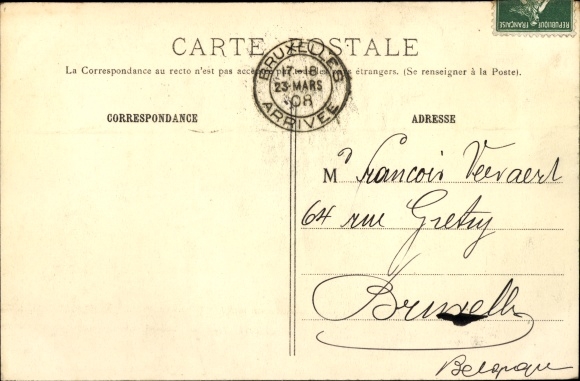 REPUBLIQUE FRANÇAISE
CARTE POSTALE
La Correspondance au recto n'est pas acceptée par tous les pays étrangers. (Se renseigner à la Poste).
BRUXELLES
17-18
23 MARS
08
ARRIVÉE
CORRESPONDANCE
ADRESSE
Mr Francois Veevaert
64 rue Gretry
Bruxelles
Belgique